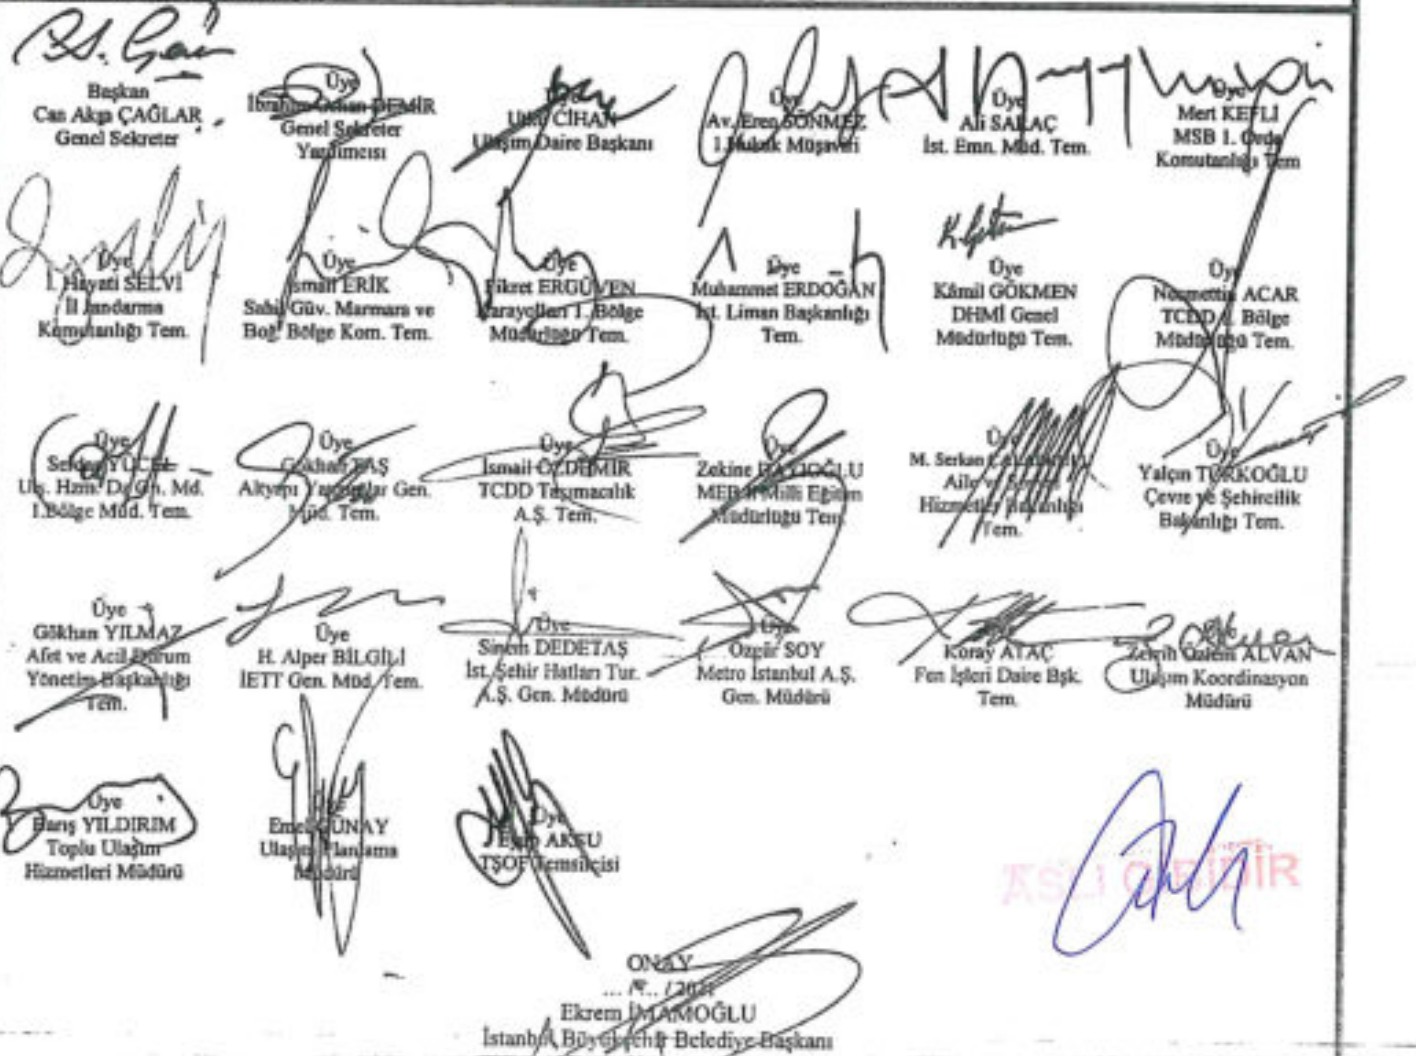 Başkan
Can Akın ÇAĞLAR
Genel Sekreter
Üye
İbrahim Orhan DEMİR
Genel Sekreter
Yardımcısı
Üye
Utku CİHAN
Ulaşım Daire Başkanı
Üye
Av. Eren SÖNMEZ
1.Hukuk Müşaviri
Üye
Ali SARAÇ
İst. Emn. Müd. Tem.
Üye
Mert KEFLİ
MSB 1. Ordu
Komutanlığı Tem
Üye
İ. Hayati SELVİ
İl Jandarma
Komutanlığı Tem.
Üye
İsmail ERİK
Sahil Güv. Marmara ve
Boğ. Bölge Kom. Tem.
Üye
Fikret ERGÜVEN
Karayolları 1. Bölge
Müdürlüğü Tem.
Üye
Muhammet ERDOĞAN
İst. Liman Başkanlığı
Tem.
Üye
Kâmil GÖKMEN
DHMİ Genel
Müdürlüğü Tem.
Üye
Necmettin ACAR
TCDD 1. Bölge
Müdürlüğü Tem.
Üye
Serdar YÜCEL
Ulş. Hzm. Dz. Gn. Md.
1.Bölge Müd. Tem.
Üye
Gökhan TAŞ
Altyapı Yatırımlar Gen.
Müd. Tem.
Üye
İsmail ÖZDEMİR
TCDD Taşımacılık
A.Ş. Tem.
Üye
Zekine
MEB İl Milli Eğitim
Müdürlüğü Tem.
Üye
M. Serkan
Aile ve
Hizmetler Bakanlığı
Tem.
Üye
Yalçın TÜRKOĞLU
Çevre ve Şehircilik
Bakanlığı Tem.
Üye
Gökhan YILMAZ
Afet ve Acil Durum
Yönetim Başkanlığı
Tem.
Üye
H. Alper BİLGİLİ
İETT Gen. Müd. Tem.
Üye
Sinem DEDETAŞ
İst. Şehir Hatları Tur.
A.Ş. Gen. Müdürü
Üye
Özgür SOY
Metro İstanbul A.Ş.
Gen. Müdürü
Koray ATAÇ
Fen İşleri Daire Bşk.
Tem.
Özlem ALVAN
Ulaşım Koordinasyon
Müdürü
Üye
Barış YILDIRIM
Toplu Ulaşım
Hizmetleri Müdürü
Üye
Emel GÜNAY
Ulaşım Planlama
Müdürü
Üye
Eyüp AKSU
TŞOF Temsilcisi
ASLI GİBİDİR
ONAY
Ekrem İMAMOĞLU
İstanbul Büyükşehir Belediye Başkanı